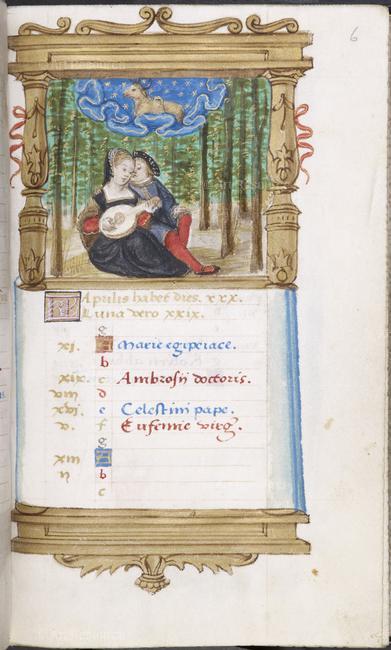 6
Aprilis habet dies. xxx.
Luna vero xxix.
g
xi. A Marie egipciace.
b
xix. c Ambrosii doctoris.
viii d
xvi. e Celestini pape.
v. f Eufemie virg.
g
xiii A
ii b
c